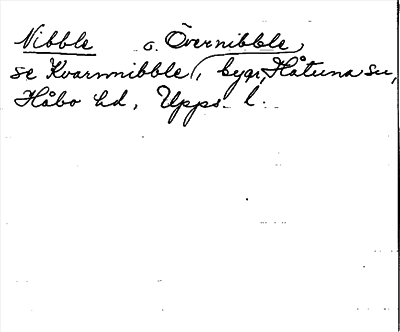 Nibble o. Övernibble,
se Kvarnnibble, bygr, Håtuna sn,
Håbo hd, Upps. l.